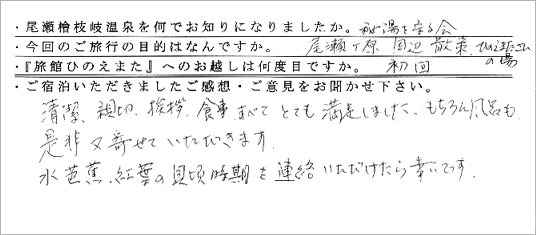 ・尾瀬檜枝岐温泉を何でお知りになりましたか。秘湯を守る会
・今回のご旅行の目的はなんですか。 尾瀬ヶ原 周辺 散策、ひのえまたさん
の湯
・『旅館ひのえまた』へのお越しは何度目ですか。 初回
・ご宿泊いただきましたご感想・ご意見をお聞かせ下さい。
清潔、親切、挨拶、食事、すべて とても 満足しました、もちろん風呂も、
是非又寄せていただきます.
水芭蕉、紅葉の見頃時期を連絡いただけたら幸いです.